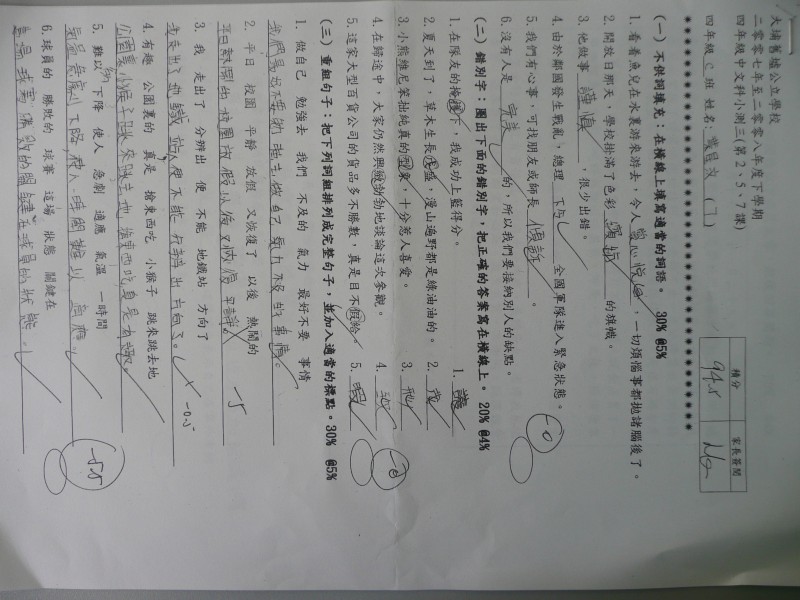 大埔舊墟公立學校
二零零七年至二零零八年度下學期
四年級中文科小測三(第2、5、7課)
四年級 C 班 姓名:
積分 家長簽閱
94.5
(一) 不供詞填充:在橫線上填寫適當的詞語。 30% @5%
1. 看着魚兒在水裏游來游去,令人 ,一切煩惱事都拋諸腦後了。
2. 開放日那天,學校掛滿了色彩 的旗幟。
3. 他做事 謹慎 ,很少出錯。
4. 由於鄰國發生戰亂,總理 下令 全國軍隊進入緊急狀態。
5. 我們有心事,可找朋友或師長 傾訴 。
6. 沒有人是 完美 的,所以我們要接納別人的缺點。
-0
(二) 錯別字:圈出下面的錯別字,把正確的答案寫在橫線上。 20% @4%
1. 在隊友的掩 下,我成功上籃得分。 1.
2. 夏天到了,草木生長 盛,漫山遍野都是綠油油的。 2.
3. 小熊維尼笨拙純真的 象,十分惹人喜愛。 3.
4. 在歸途中,大家仍然興 勃勃地談論這次參觀。 4.
5. 這家大型百貨公司的貨品多不勝數,真是目不假給。 5. 暇
(三) 重組句子:把下列詞組排列成完整句子,並加入適當的標點。30% @5%
1. 做自己 勉強去 我們 不及的 氣力 最好不要 事情
我們最好不要勉強去做自己氣力不及的事情。
2. 平日 校園 平靜 放假 又恢復了 以後 熱鬧的
平日熱鬧的校園放假以後又恢復平靜
-5
3. 我 走出了 分辨出 便 不能 地鐵站 方向了
我走出了地鐵站便不能分辨出方向了。
-0.5
4. 有趣 公園裏的 真是 搶東西吃 小猴子 跳來跳去地
公園裏小猴子跳來跳去地搶東西吃真是有趣。
5. 難以 下降 使人 急劇 適應 氣溫 一時間
氣溫急劇下降,使人一時間難以適應。
-5.5
6. 球員的 勝敗的 球賽 這場 狀態 關鍵在
這場球賽勝敗的關鍵在球員的狀態。